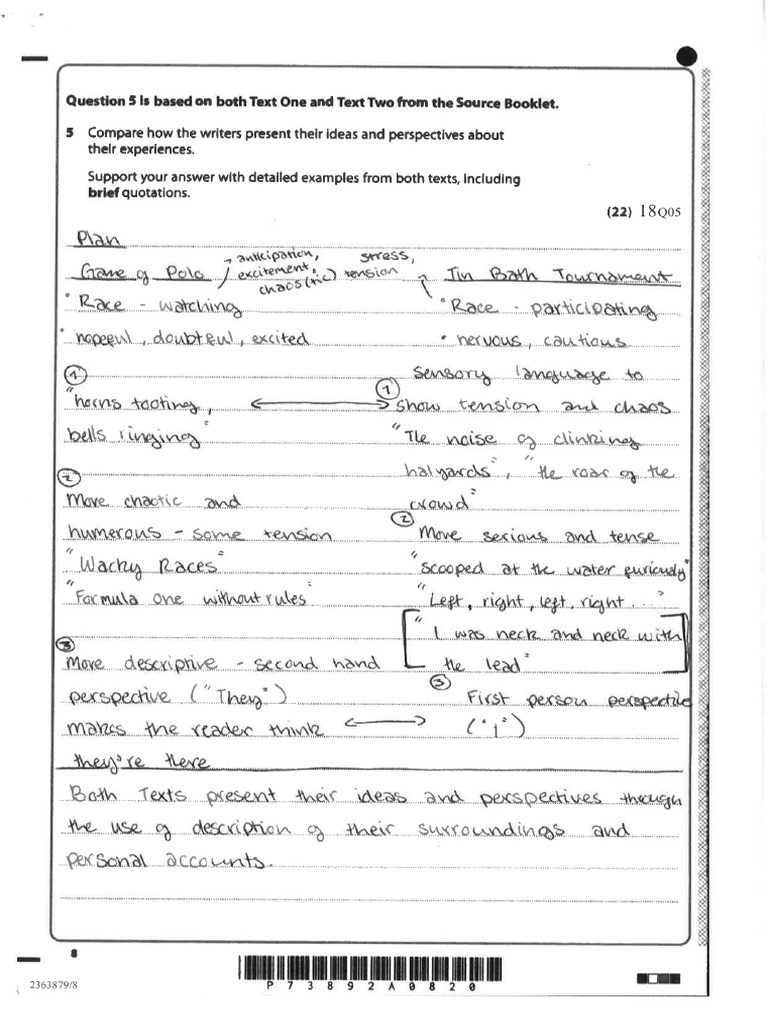 Question 5 is based on both Text One and Text Two from the Source Booklet.
5 Compare how the writers present their ideas and perspectives about
their experiences.
Support your answer with detailed examples from both texts, including
brief quotations.
(22) 18Q05
Plan
Game of Polo / → anticipation, excitement, chaos(tic) stress, tension
Tin Bath Tournament
• Race - watching
• Race - participating
• hopeful, doubtful, excited
• nervous, cautious
① "horns tooting,
bells ringing"
① Sensory language to
show tension and chaos
"The noise of clinking
halyards", "the roar of the
crowd"
② More chaotic and
humerous - some tension
"Wacky Races"
"Formula one without rules"
② More serious and tense
"scooped at the water furiously"
"Left, right, left, right...."
["I was neck and neck with
the lead"]
③ More descriptive - second hand
perspective ("They")
makes the reader think
they're there
③ First person perspective
("I")
Both Texts present their ideas and perspectives through
the use of description of their surroundings and
personal accounts.
8
2363879/8
P73892A0820